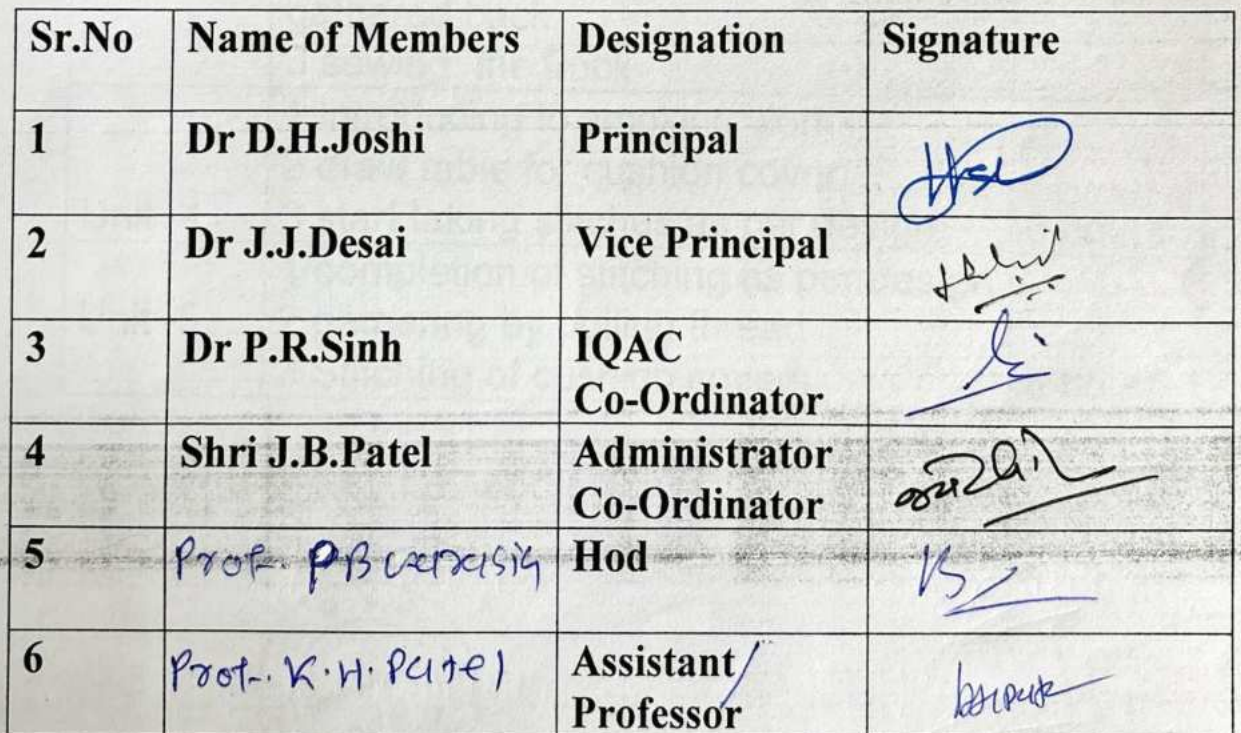 Sr.No Name of Members Designation Signature
1 Dr D.H.Joshi Principal
2 Dr J.J.Desai Vice Principal
3 Dr P.R.Sinh IQAC
Co-Ordinator
4 Shri J.B.Patel Administrator
Co-Ordinator
5 Prof. PB Hod
6 Prof. K.H. Patel Assistant
Professor